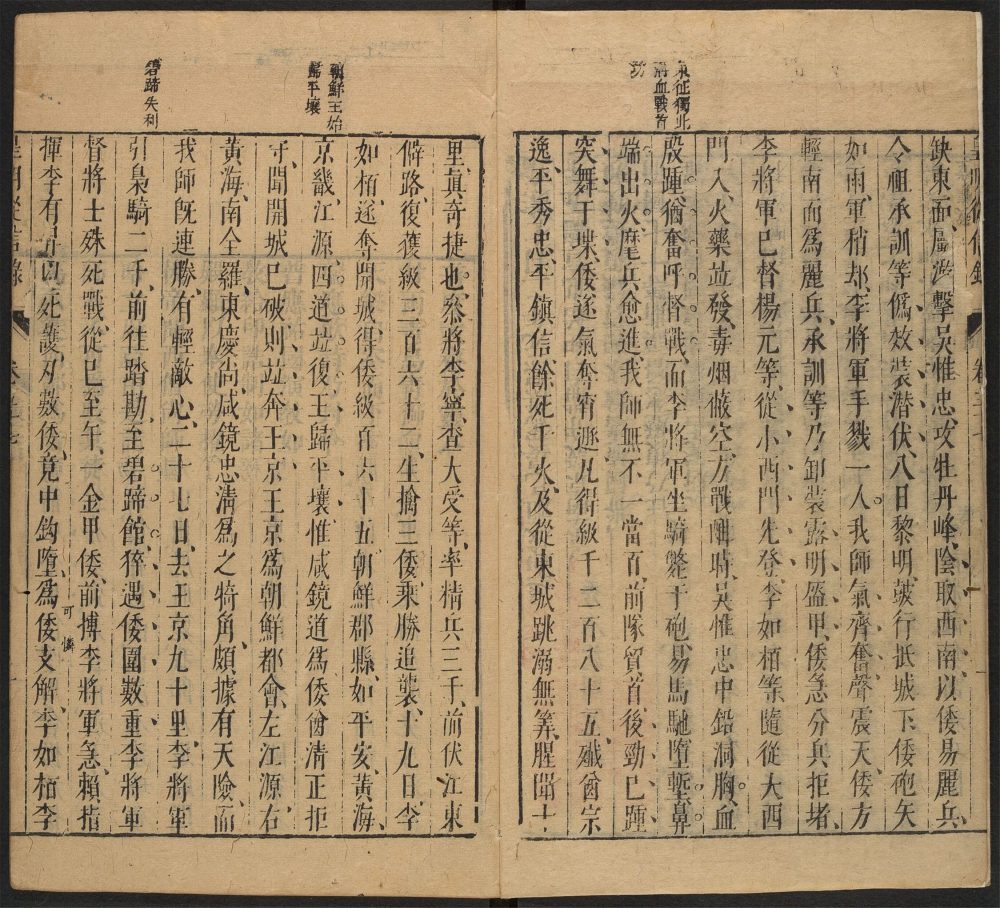 東征獨此
一
缺東面、屬游擊吳惟忠、攻牡丹峰、陰取西南、以倭易麗兵、
令祖承訓等、僞效裝潛伏、八日黎明、皷行抵城下、倭砲矢
如雨、軍稍却、李將軍手戮一人、我師氣齊奮、聲震天、倭方
輕南面爲麗兵、承訓等乃卸裝露明盔甲、倭急分兵拒堵、
李將軍已督楊元等、從小西門先登、李如栢等隨從大西
門入、火藥並發、毒烟蔽空、方戰酣時、吳惟忠中鉛洞胸、血
殷踵、猶奮呼督戰、而李將軍坐騎斃于砲、易馬馳墮塹、鼻
端出火、麾兵愈進、我師無不一當百、前隊貿首、後勁已踵、
突舞于堞、倭遂氣奪宵遁、凡得級千二百八十五、殲酋宗
逸、平秀忠、平鎮信、餘死于火、及從東城跳溺無筭、腥聞十
朝鮮王始
歸平壤
碧蹄失利
里、眞奇捷也、叅將李寧、查大受等、率精兵三千、前伏江東
僻路、復獲級三百六十二、生擒三倭、乘勝追襲、十九日、李
如栢遂奪開城、得倭級百六十五、朝鮮郡縣、如平安、黃海、
京畿、江源、四道並復、王歸平壤、惟咸鏡道爲倭酋清正拒
守、聞開城已破、則並奔王京、王京爲朝鮮都會、左江源、右
黃海、南全羅、東慶尚、咸鏡忠淸爲之犄角、頗據有天險、而
我師旣連勝、有輕敵心、二十七日、去王京九十里、李將軍
引梟騎二千、前往踏勘、至碧蹄館、猝遇倭、圍數重、李將軍
督將士殊死戰、從巳至午、一金甲倭、前搏李將軍急、賴指
揮李有昇以死護、刃數倭、竟中鈎墮、爲倭支解、李如栢李
可憐